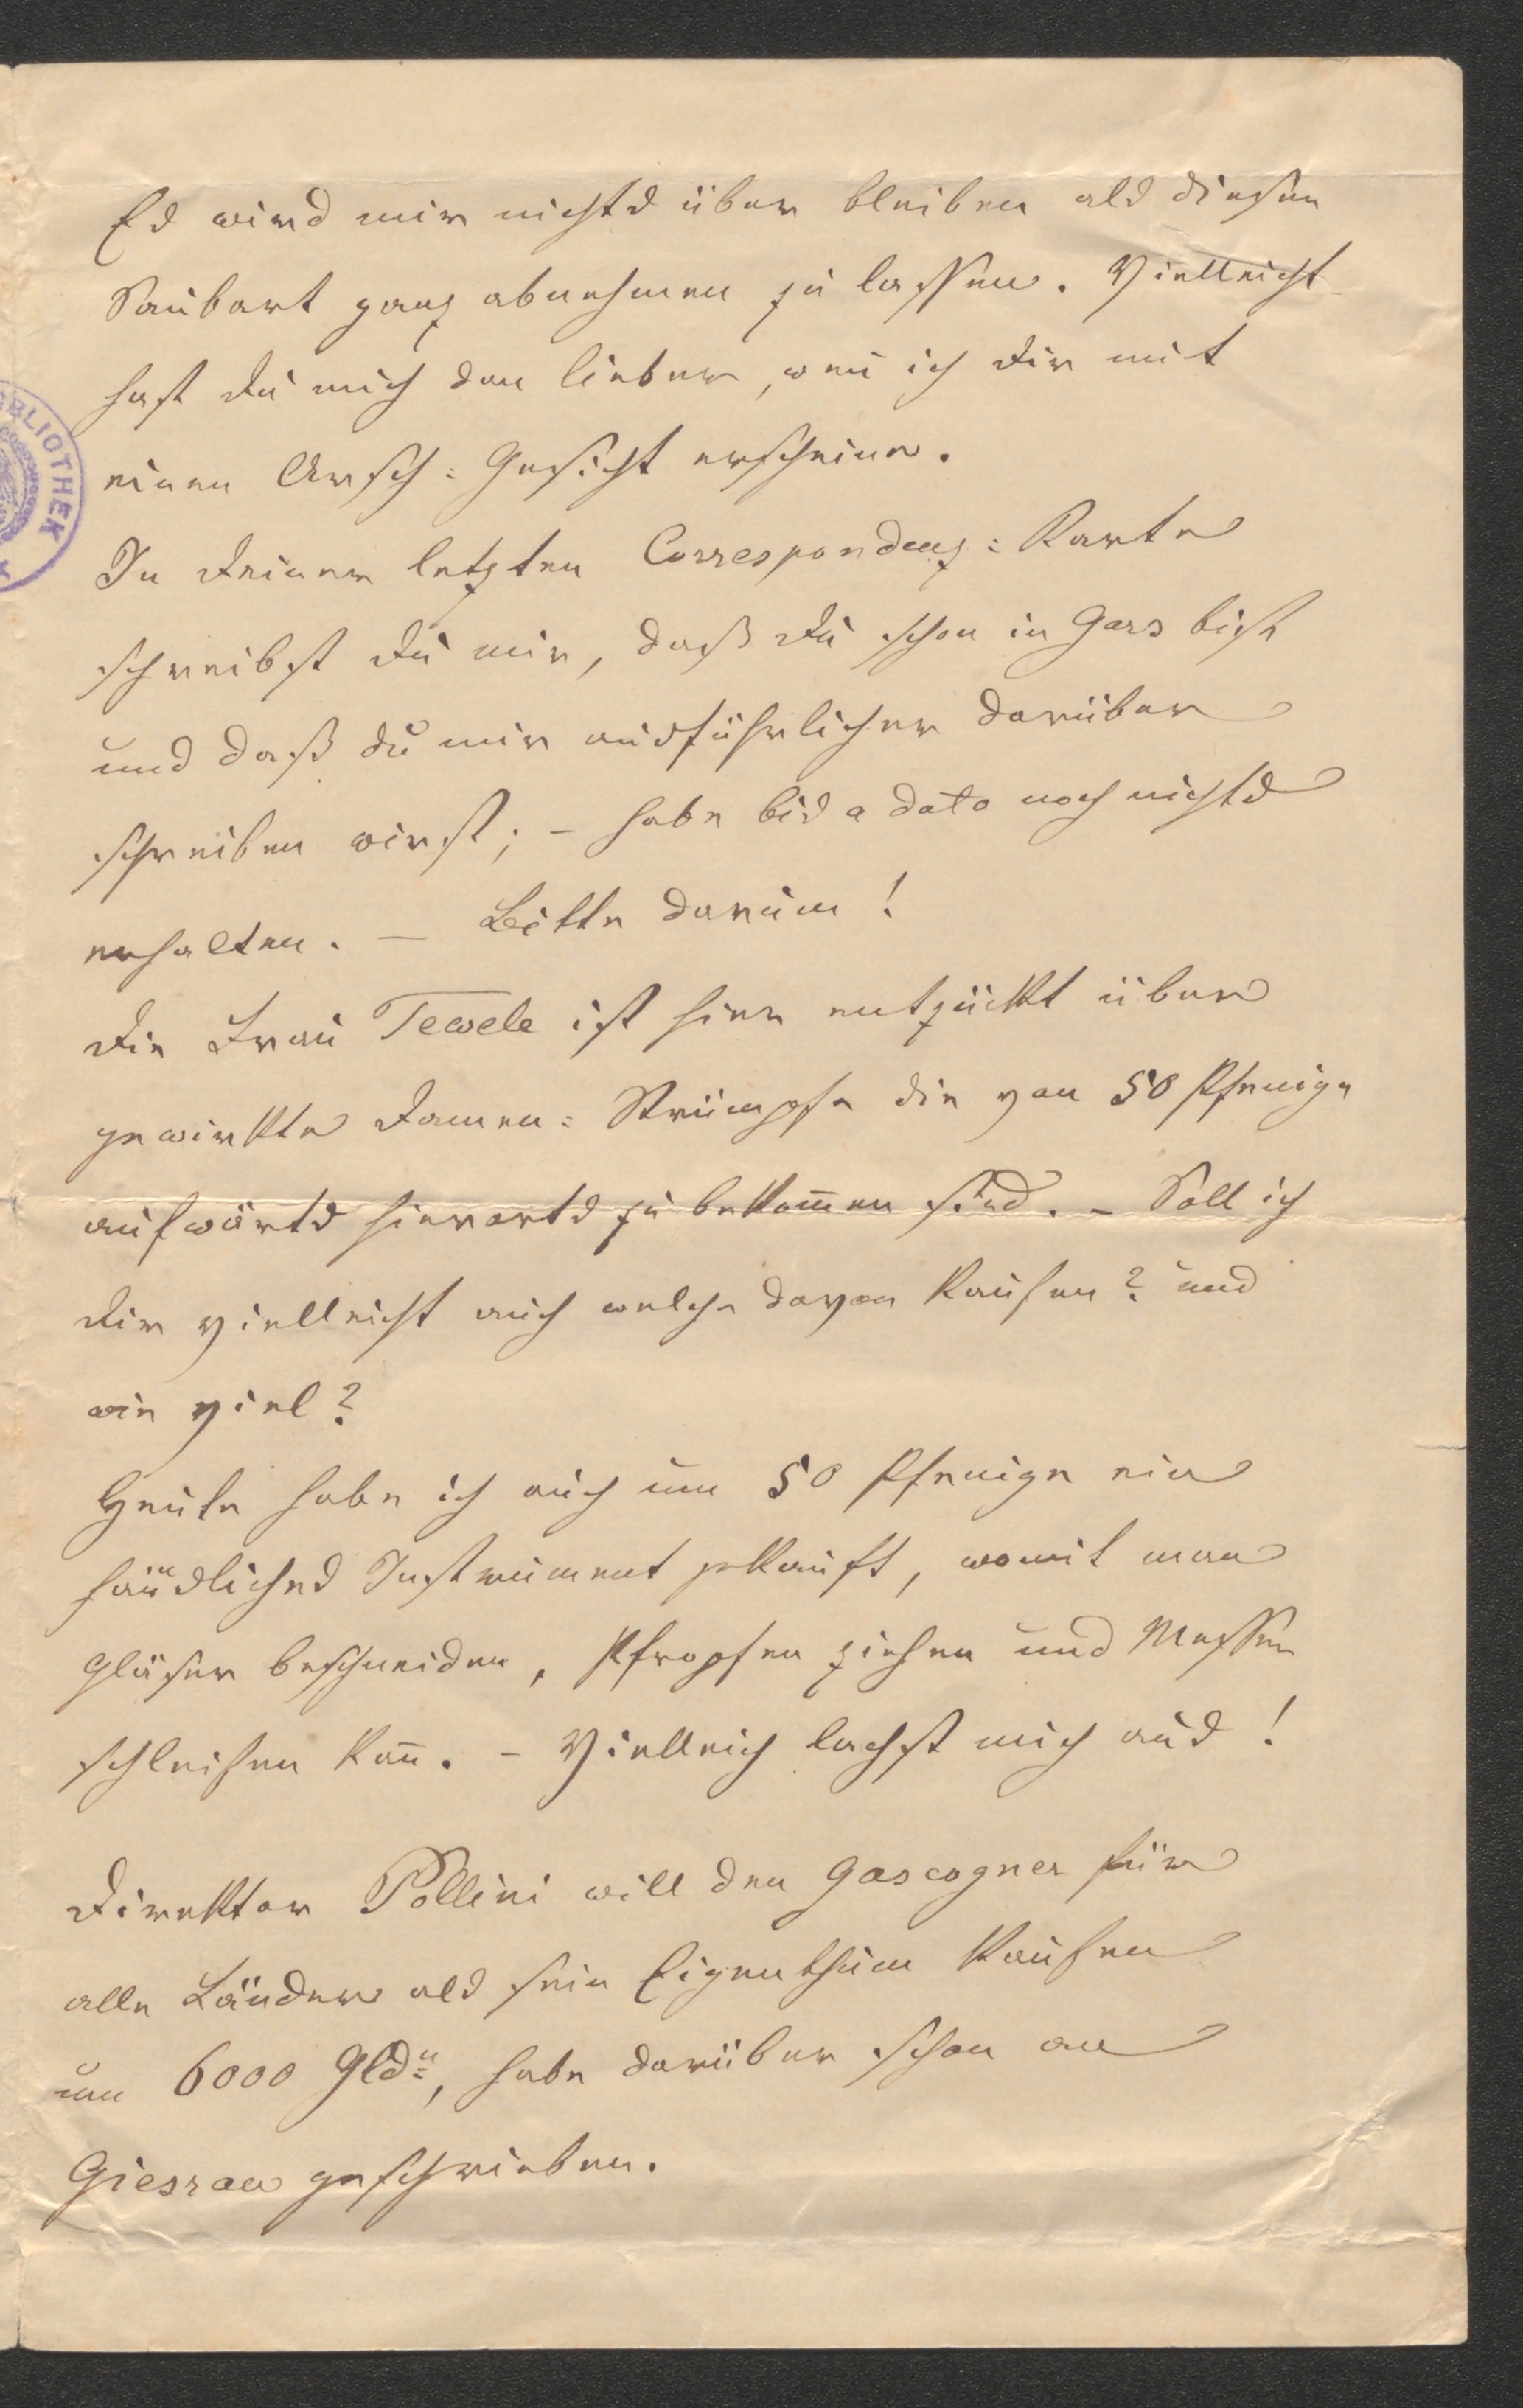 Es wird mir nichts über bleiben als diesen
Saubart ganz abnehmen zu lassen. Vielleicht
hast Du mich dan lieber, wen̄ ich Dir mit
einen Arsch=Gesicht erscheine.
In Deiner letzten Correspondenz=Karte
schreibst Du mir, daß Du schon in Gars bist
und daß du mir ausführlicher darüber
schreiben wirst; – habe bis a dato noch nichts
erhalten. – Bitte darum!
Die Frau Tewele ist hier entzückt über
gewirkte Damen=Strümpfe die von 50 Pfenige
aufwärts hierorts zu bekom̄en sind. – Soll ich
Dir vielleicht auch welche davon kaufen? und
wie viel?
Heute habe ich auch um 50 Pfenige ein
häusliches Instrument gekauft, womit man
Gläser beschneiden, Pfropfen ziehen und Messer
schleifen kan̄. – Vielleich lachst mich aus!
Direktor Pollini will den Gascogner für
alle Länder als sein Eigenthum kaufen
um 6000 Gldn, habe darüber schon an
Giesrau geschrieben.
BIBLIOTHEK